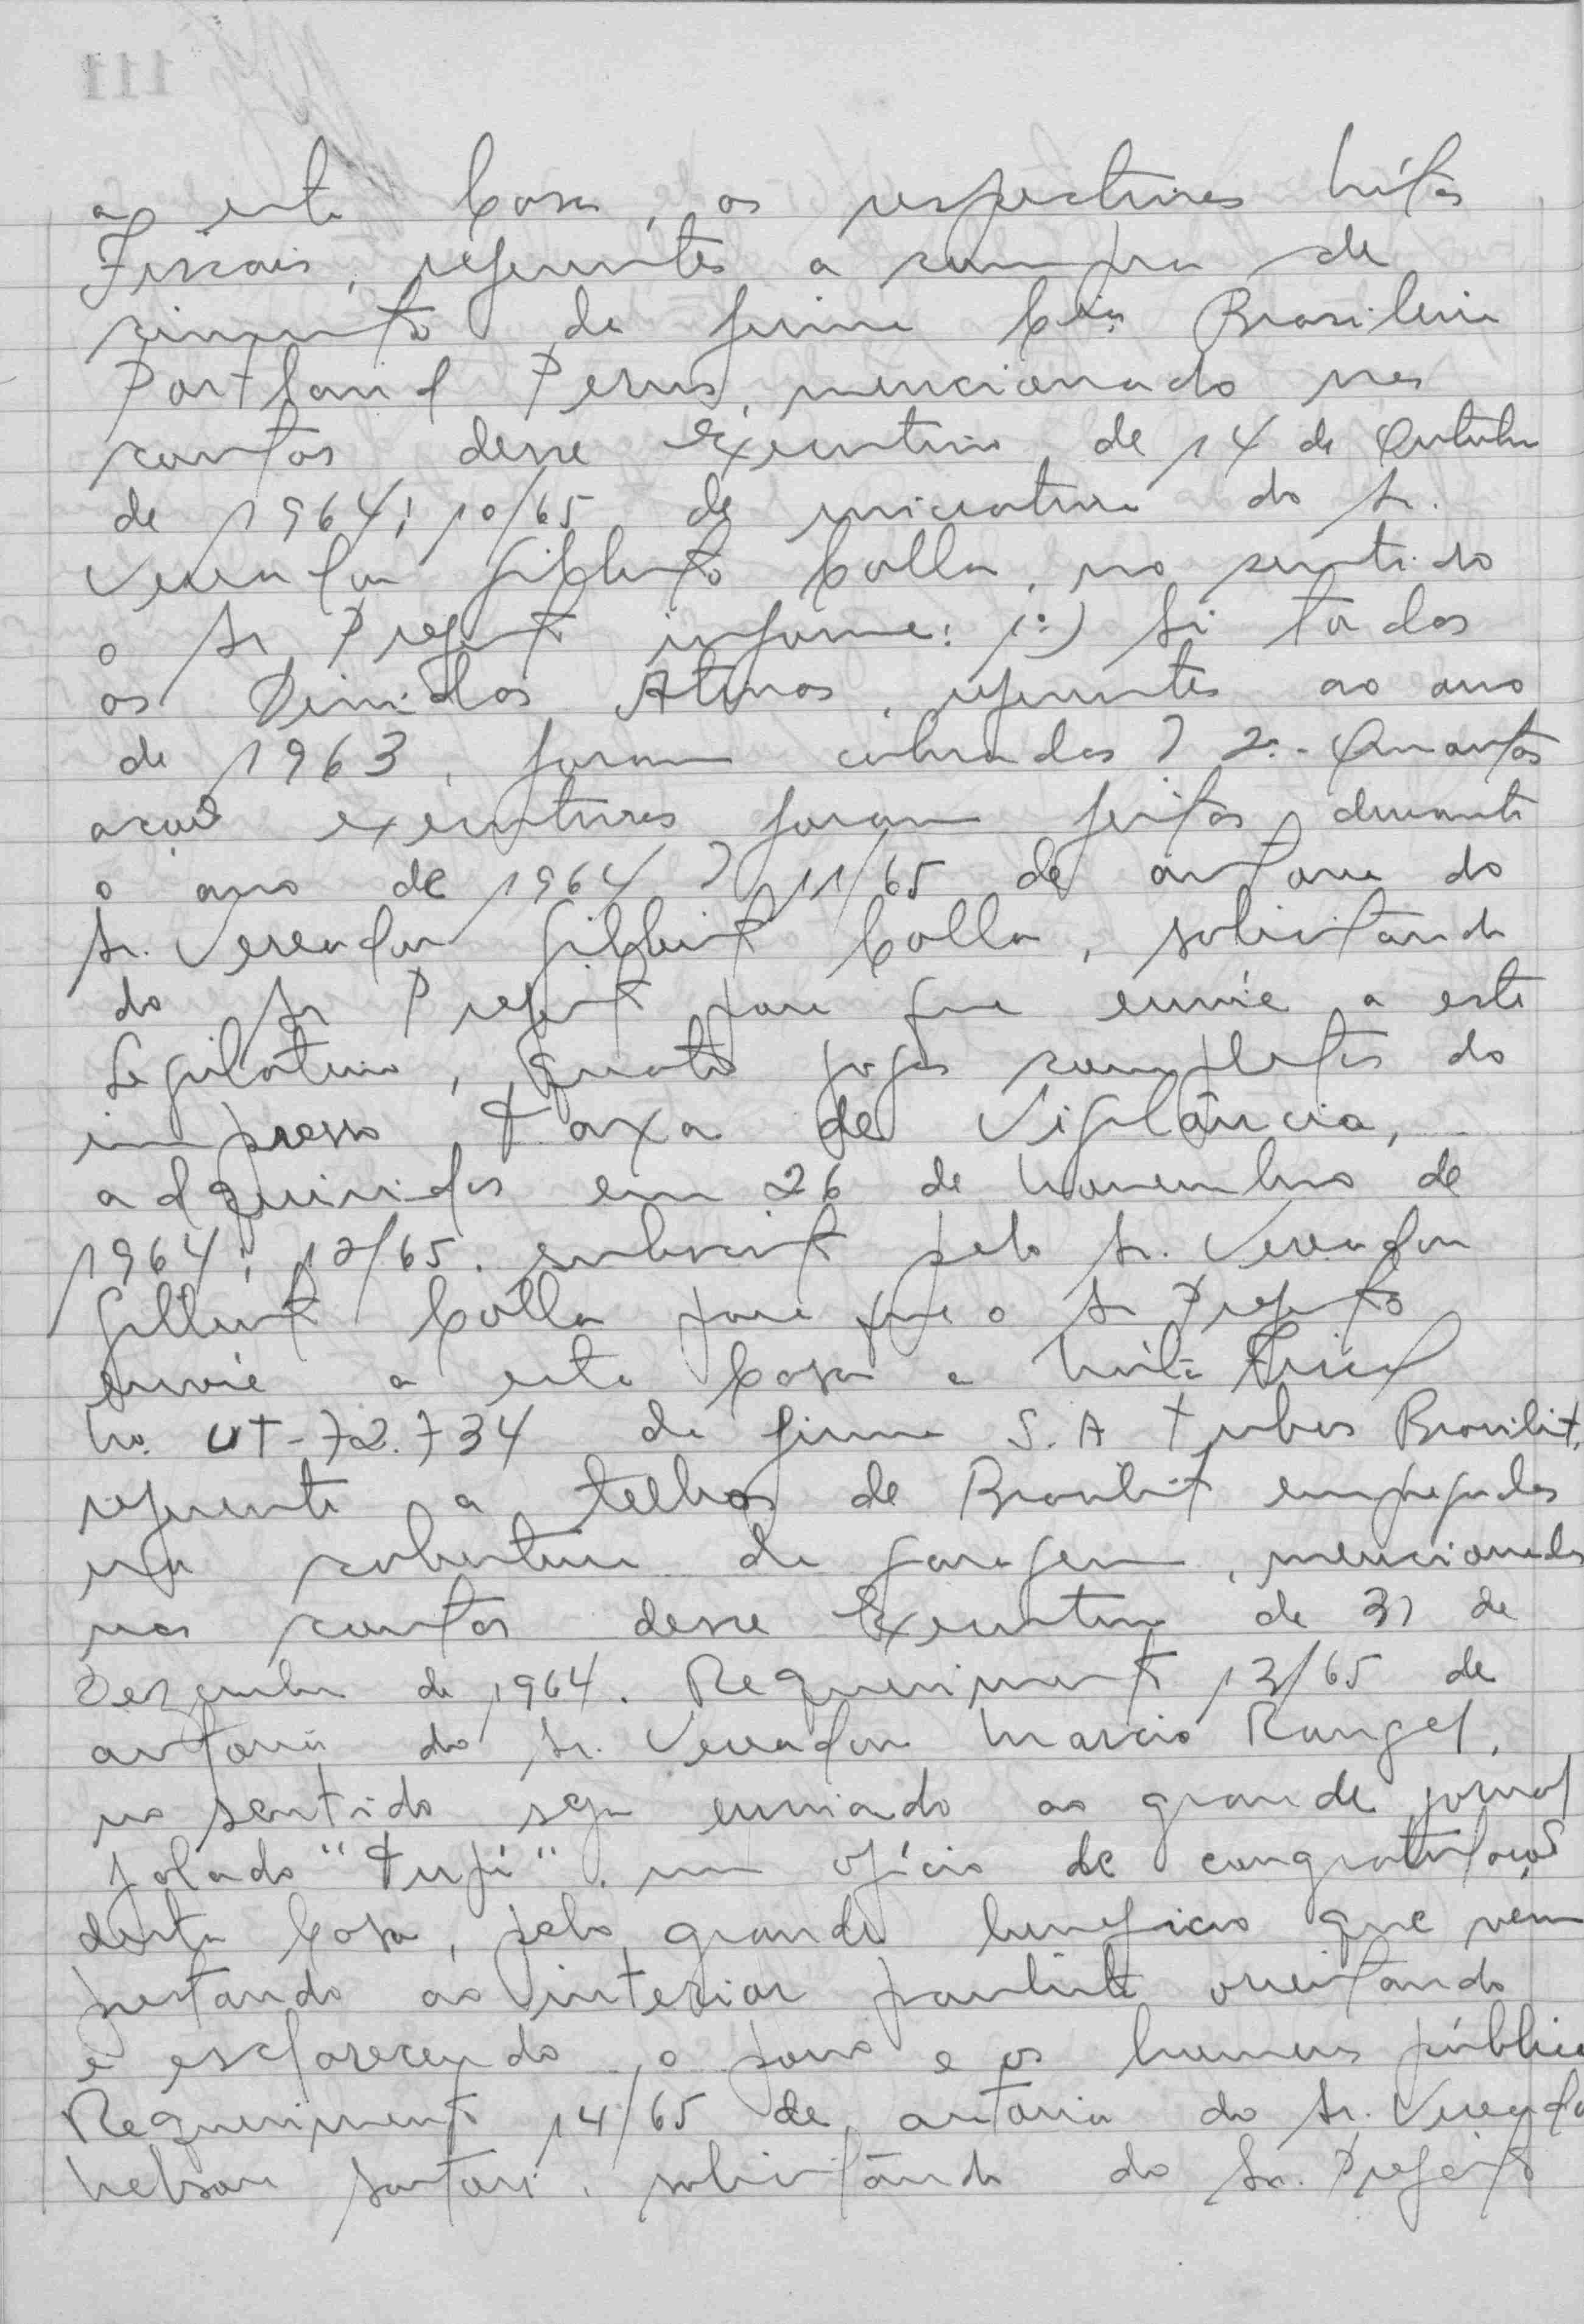 a esta Casa, as respectivas Nótas
Fiscais, referentes a compra de
cimento da firma Cia. Brasileira
Portland Perus, mencionado nas
contas desse Executivo de 14 de Outubro
de 1964; 10/65 de iniciativa do Sr.
Vereador Gilberto Colla, no sentido
o Sr. Prefeito informe: 1º) Si todas
as Dividas Ativas, referentes ao ano
de 1963, foram cobradas? 2º - Quantas
ações executivas foram feitas durante
o ano de 1964? 11/65 de autoria do
Sr. Vereador Gilberto Colla, solicitando
do Sr Prefeito para que envie a este
Legislativo, quatro jogos completos do
impresso taxa de Vigilância,
adquiridos em 26 de Novembro de
1964; 12/65. subscrito pelo Sr. Vereador
Gilberto Colla para que o Sr Prefeito
envie a esta Casa a Nóta Fiscal
No. UT-72.734 da firma S.A Tubos Brasilit,
referente a telhas de Brasilit empregadas
na cobertura da garagem, mencionada
nas contas desse Executivo de 31 de
Dezembro de 1964. Requerimento 13/65 de
autoria do Sr. Vereador Marcio Rangel,
no sentido seja enviado ao grande jornal
falado "Tupi", um ofício de congratulações
desta Casa, pelo grande beneficio que vem
prestando ao interior paulista orientando
e esclarecendo o povo e os homens públicos
Requerimento 14/65 de autoria do Sr. Vereador
Nelson Sartori, solicitando do Sr. Prefeito